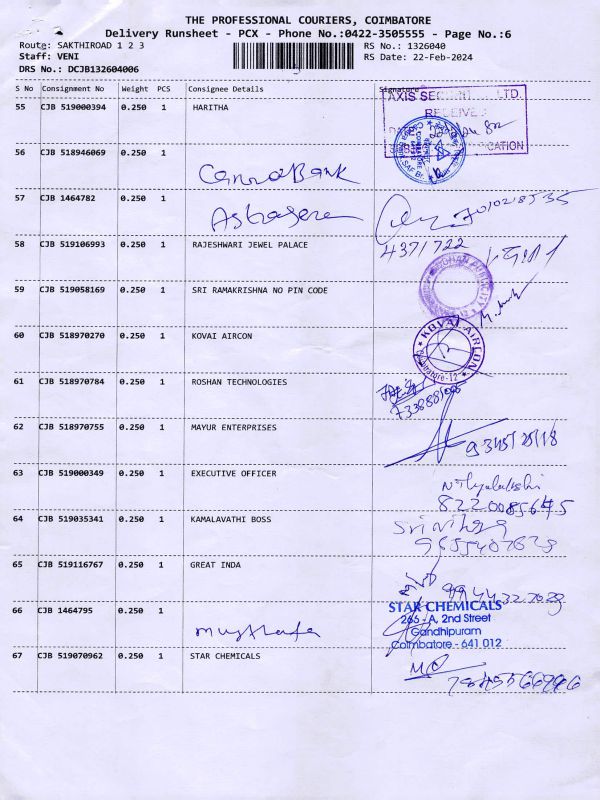 THE PROFESSIONAL COURIERS, COIMBATORE
Delivery Runsheet - PCX - Phone No.:0422-3505555 - Page No.:6
Route: SAKTHIROAD 1 2 3
RS No.: 1326040
Staff: VENI
RS Date: 22-Feb-2024
DRS No.: DCJB132604006
S No Consignment No Weight PCS Consignee Details Signature
55 CJB 519000394 0.250 1 HARITHA
AXIS SEC LTD.
RECEIVED
CATION
56 CJB 518946069 0.250 1
Canara Bank
57 CJB 1464782 0.250 1
58 CJB 519106993 0.250 1 RAJESHWARI JEWEL PALACE
4371722
59 CJB 519058169 0.250 1 SRI RAMAKRISHNA NO PIN CODE
60 CJB 518970270 0.250 1 KOVAI AIRCON
KOVAI AIRCON
Coimbatore-12
61 CJB 518970784 0.250 1 ROSHAN TECHNOLOGIES
62 CJB 518970755 0.250 1 MAYUR ENTERPRISES
63 CJB 519000349 0.250 1 EXECUTIVE OFFICER
64 CJB 519035341 0.250 1 KAMALAVATHI BOSS
65 CJB 519116767 0.250 1 GREAT INDA
66 CJB 1464795 0.250 1
STAR CHEMICALS
265 - A, 2nd Street
Gandhipuram
Coimbatore - 641 012
67 CJB 519070962 0.250 1 STAR CHEMICALS